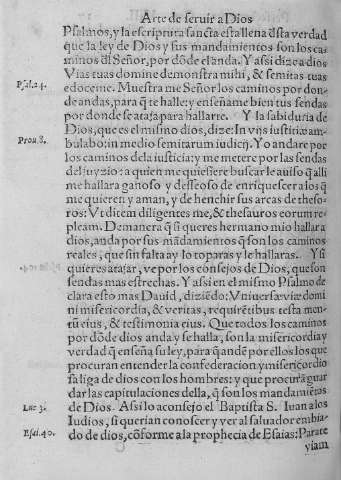 Arte de seruir a Dios
Psalmos, y la escriptura sancta esta llena đsta verdad
que la ley de Dios y sus mandamientos son los ca
minos đl Señor, por dõde el anda. Y assi dize a dios
Vias tuas domine demonstra mihi, & semitas tuas
Psal. 24. edoce me. Muestra me Señor los caminos por don-
de andas, para q̃ te halle: y enseñame bien tus sendas
por donde se ataja para hallarte. Y la sabiduria de
Dios, que es el mismo dios, dize: In vijs iustitiæ am-
Prou. 8. bulabo: in medio semitarum iudicij. Yo andare por
los caminos dela iusticia: y me metere por las sendas
del juyzio: a quien me quisiere buscar le auiso q̃ alli
me hallara ganoso y desseoso de enriquescer a los q̃
me quieren y aman, y de henchir sus arcas de theso-
ros: Vt ditem diligentes me, & thesauros eorum re-
pleam. De manera q̃ si quieres hermano mio hallar a
dios, anda por sus mãdamientos q̃ son los caminos
reales, que sin falta ay lo toparas y le hallaras. Y si
quieres atajar, ve por los consejos de Dios, que son
sendas mas estrechas. Y assi en el mismo Psalmo de
clara esto mas Dauid, diziẽdo: Vniuersæ viæ domi
ni misericordia, & veritas, requirẽtibus testamen-
tũ eius, & testimonia eius. Que todos los caminos
por dõde dios anda y se halla, son la misericordia y
verdad q̃ enseña su ley, para q̃ andẽ por ellos los que
procuran entender la confederacion y misericordio
sa liga de dios con los hombres: y que procurã guar
dar las capitulaciones della, q̃ son los mandamiẽtos
Luc. 3. de Dios. Assi lo aconsejo el Baptista S. Iuan a los
Iudios, si querian conoscer y ver al saluador embia-
Esai. 40. do de dios, cõforme a la prophecia de Esaias: Parate
viam